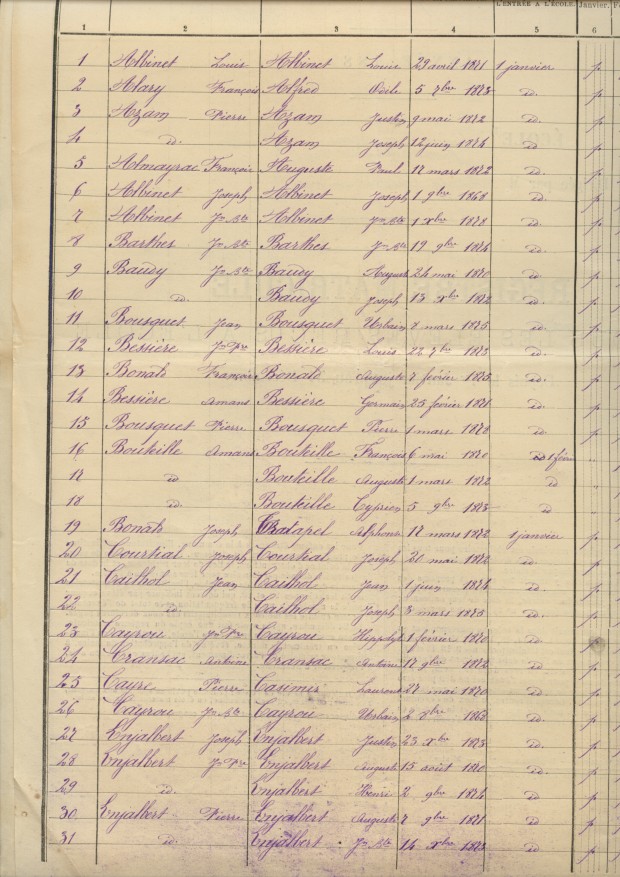 L'ENTRÉE A L'ÉCOLE. Janvier. F
1 2 3 4 5 6
1 Albinet Louis Albinet Louis 29 avril 1871 1 janvier p
2 Alary François Alfred Odile 5 7bre 1873 id. p
3 Azam Pierre Azam Justin 9 mai 1872 id. p
4 id. Azam Joseph 12 juin 1874 id. p
5 Almayrac François Auguste Paul 17 mars 1872 id. p
6 Albinet Joseph Albinet Joseph 1 9bre 1868 id. p
7 Albinet Jn Bte Albinet Jn Bte 1 xbre 1878 id. p
8 Barthes Jn Bte Barthes Jn Bte 19 9bre 1874 id. p
9 Baudy Jn Bte Baudy Auguste 24 mai 1870 id. p
10 id. Baudy Joseph 13 xbre 1872 id. p
11 Bousquet Jean Bousquet Urbain mars 1875 id. p
12 Bessière Jn Pre Bessière Louis 22 7bre 1873 id. p
13 Bonats François Bonats Auguste 7 février 1875 id. p
14 Bessière Amans Bessière Germain 25 février 1871 id. p
15 Bousquet Pierre Bousquet Pierre 1 mars 1878 id. p
16 Bouteille Amans Bouteille François 6 mai 1870 1 févr
17 id Bouteille Auguste 1 mars 1872 id
18 id. Bouteille Cyprien 5 9bre 1873 id
19 Bonats Joseph Chatapel Alphonse 17 mars 1872 1 janvier p
20 Courtial Joseph Courtial Joseph 20 mai 1872 id. p
21 Cailhol Jean Cailhol Jean 1 juin 1874 id. p
22 id. Cailhol Joseph 3 mars 1875 id. p
23 Cayrou Jn Pre Cayrou Hippolyte 1 février 1870 id. p
24 Cransac Antoine Cransac Antoine 17 9bre 1872 id. p
25 Cayre Pierre Casimir Laurent 27 mai 1870 id. p
26 Cayrou Jn Bte Cayrou Urbain 2 1868 id. p
27 Enjalbert Joseph Enjalbert Justin 23 xbre 1873 id. p
28 Enjalbert Jn Pre Enjalbert Auguste 15 août 1870 id. p
29 id. Enjalbert Henri 2 9bre 1874 id p
30 Enjalbert Pierre Enjalbert Auguste 7 9bre 1871 id p
31 id. Enjalbert Jn Bte 14 xbre 1873 id p